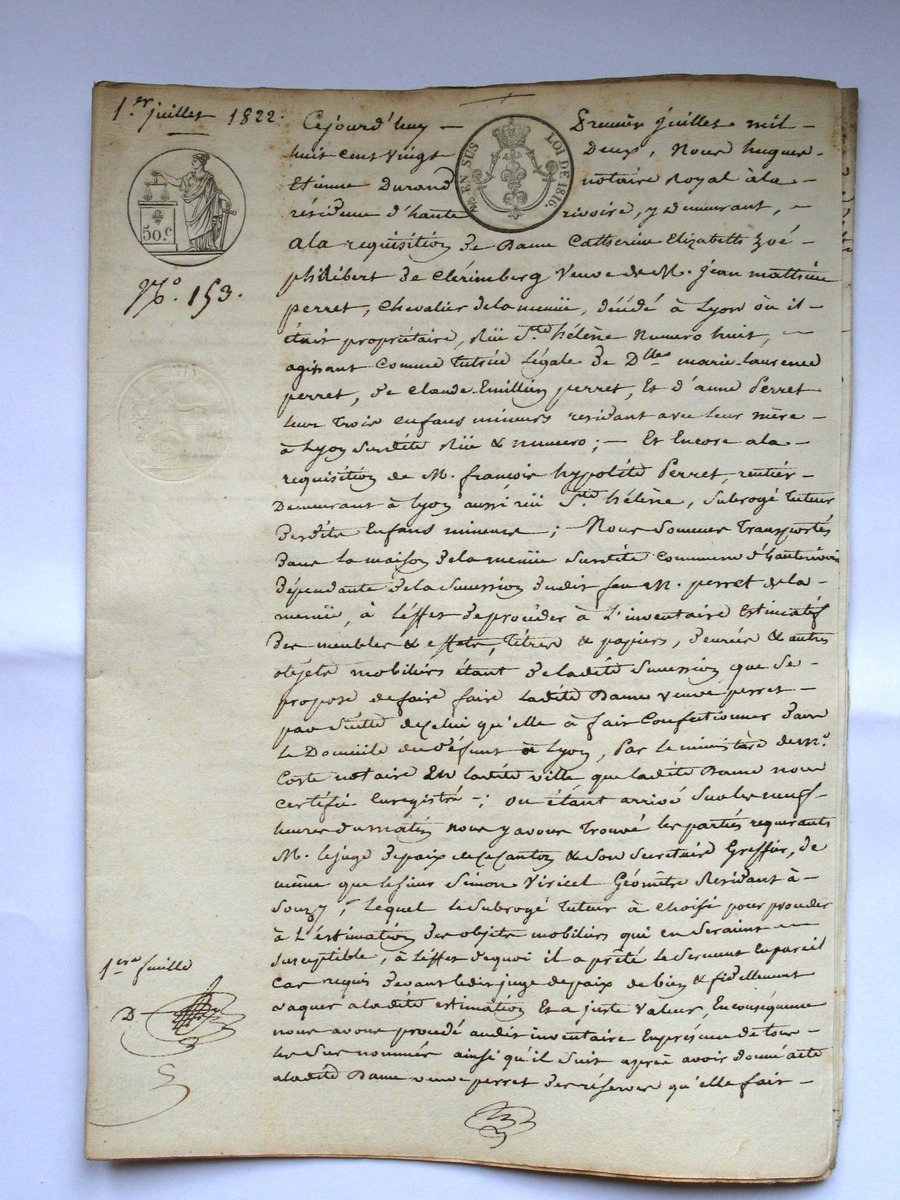 1.er juillet 1822.
50.c
N.o 153.
EN SUS LOI DE 1816.
Cejourd'huy – Premier juillet mil –
huit cent vingt Deux, Nous hugues –
Etienne Durand notaire Royal à la –
résidence d'haute rivoire, y demeurant, –
a la requisition de Dame Catherine Elizabeth Zoé –
philibert de Clérimberg Veuve de M. Jean mathieu
perret, Chevalier de la menüe, décédé à Lyon où il –
était propriétaire, Rüe S.te hélène Numero huit, –
agissant Comme tutrice légale de D.lles marie-Laurence
perret, de Claude-Emillien perret, Et d'anne Perret
leur trois enfans mineurs residant avec leur mère –
à Lyon susdite Rüe & numero; – Et Encore a la –
requisition de M. françois hyppolite Perret, rentier
Demeurant à Lyon aussi rüe S.te hélène, subrogé tuteur
desdits Enfans mineurs –; Nous sommes transportés
dans la maison de la menüe susdite Commune d'hauterivoire
dépendante de la succession dudit feu M. perret de la –
menüe, à l'effet de procéder à L'inventaire Estimatif
des meubles & effets, titres & papiers, denrées & autres
objets mobiliers étant de la dite succession que se –
propose de faire faire ladite Dame veuve perret –
par suitte de celui qu'elle à fait Confectionner dans
le Domicile du défunt à Lyon, Par le ministère de M.e
Coste notaire En la dite ville que ladite Dame nous
certifie Enregistré –; ou étant arrivé sur les neuf –
heures du matin nous y avons trouvé les parties requerants
M. le juge de paix de ce Canton & son secretaire Greffier, de
même que le sieur Simon Viricel Géomètre Residant à –
Souzy, lequel le subrogé tuteur à choisi pour procéder
à L'estimation des objets mobiliers qui en seraient –
susceptible, à l'effet de quoi il a prêté le serment En pareil
Cas requis devant ledit juge de paix de bien & fidellement
vaquer a la dite estimation Et a juste Valeur, En conséquence
nous avons procédé audit inventaire En présence de tous –
les sus nommés ainsi qu'il suit après avoir donné acte
a la dite Dame veuve perret des réserves qu'elle fait –
1.ere feuille
D